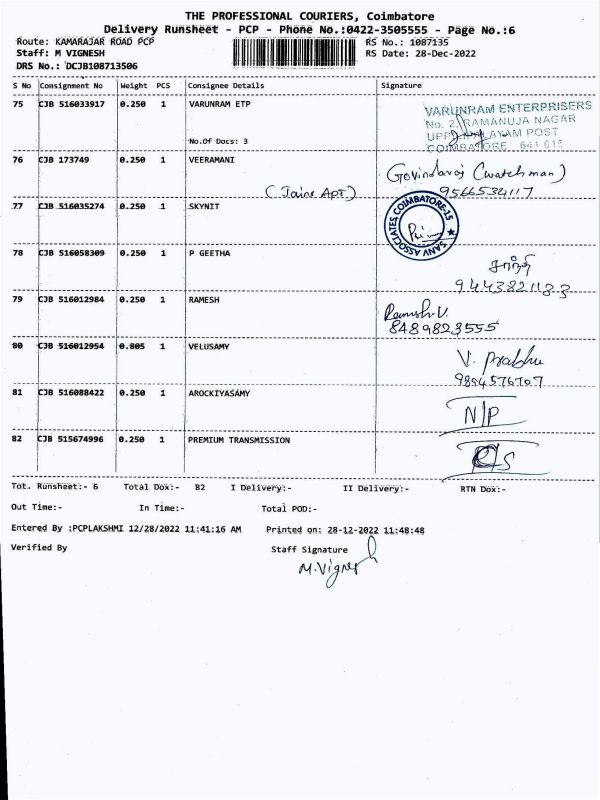 THE PROFESSIONAL COURIERS, Coimbatore
Delivery Runsheet - PCP - Phone No.:0422-3505555 - Page No.:6
Route: KAMARAJAR ROAD PCP RS No.: 1087135
Staff: M VIGNESH RS Date: 28-Dec-2022
DRS No.: DCJB108713506
S No Consignment No Weight PCS Consignee Details Signature
75 CJB 516033917 0.250 1 VARUNRAM ETP VARUNRAM ENTERPRISERS
No. 2, RAMANUJA NAGAR
No.Of Docs: 3 POST
COIMBATORE 641 015
76 CJB 173749 0.250 1 VEERAMANI Govindaraj (watchman)
(Jains APT) 9566534117
77 CJB 516035274 0.250 1 SKYNIT SANV ASSOCIATES, COIMBATORE-15
78 CJB 516058309 0.250 1 P GEETHA சாந்தி
9443821183
79 CJB 516012984 0.250 1 RAMESH Ramesh.V.
8489823555
80 CJB 516012954 0.805 1 VELUSAMY V. Prabhu
9894576707
81 CJB 516088422 0.250 1 AROCKIYASAMY N/P
82 CJB 515674996 0.250 1 PREMIUM TRANSMISSION
Tot. Runsheet:- 6 Total Dox:- 82 I Delivery:- II Delivery:- RTN Dox:-
Out Time:- In Time:- Total POD:-
Entered By :PCPLAKSHMI 12/28/2022 11:41:16 AM Printed on: 28-12-2022 11:48:48
Verified By Staff Signature
M.Vignesh